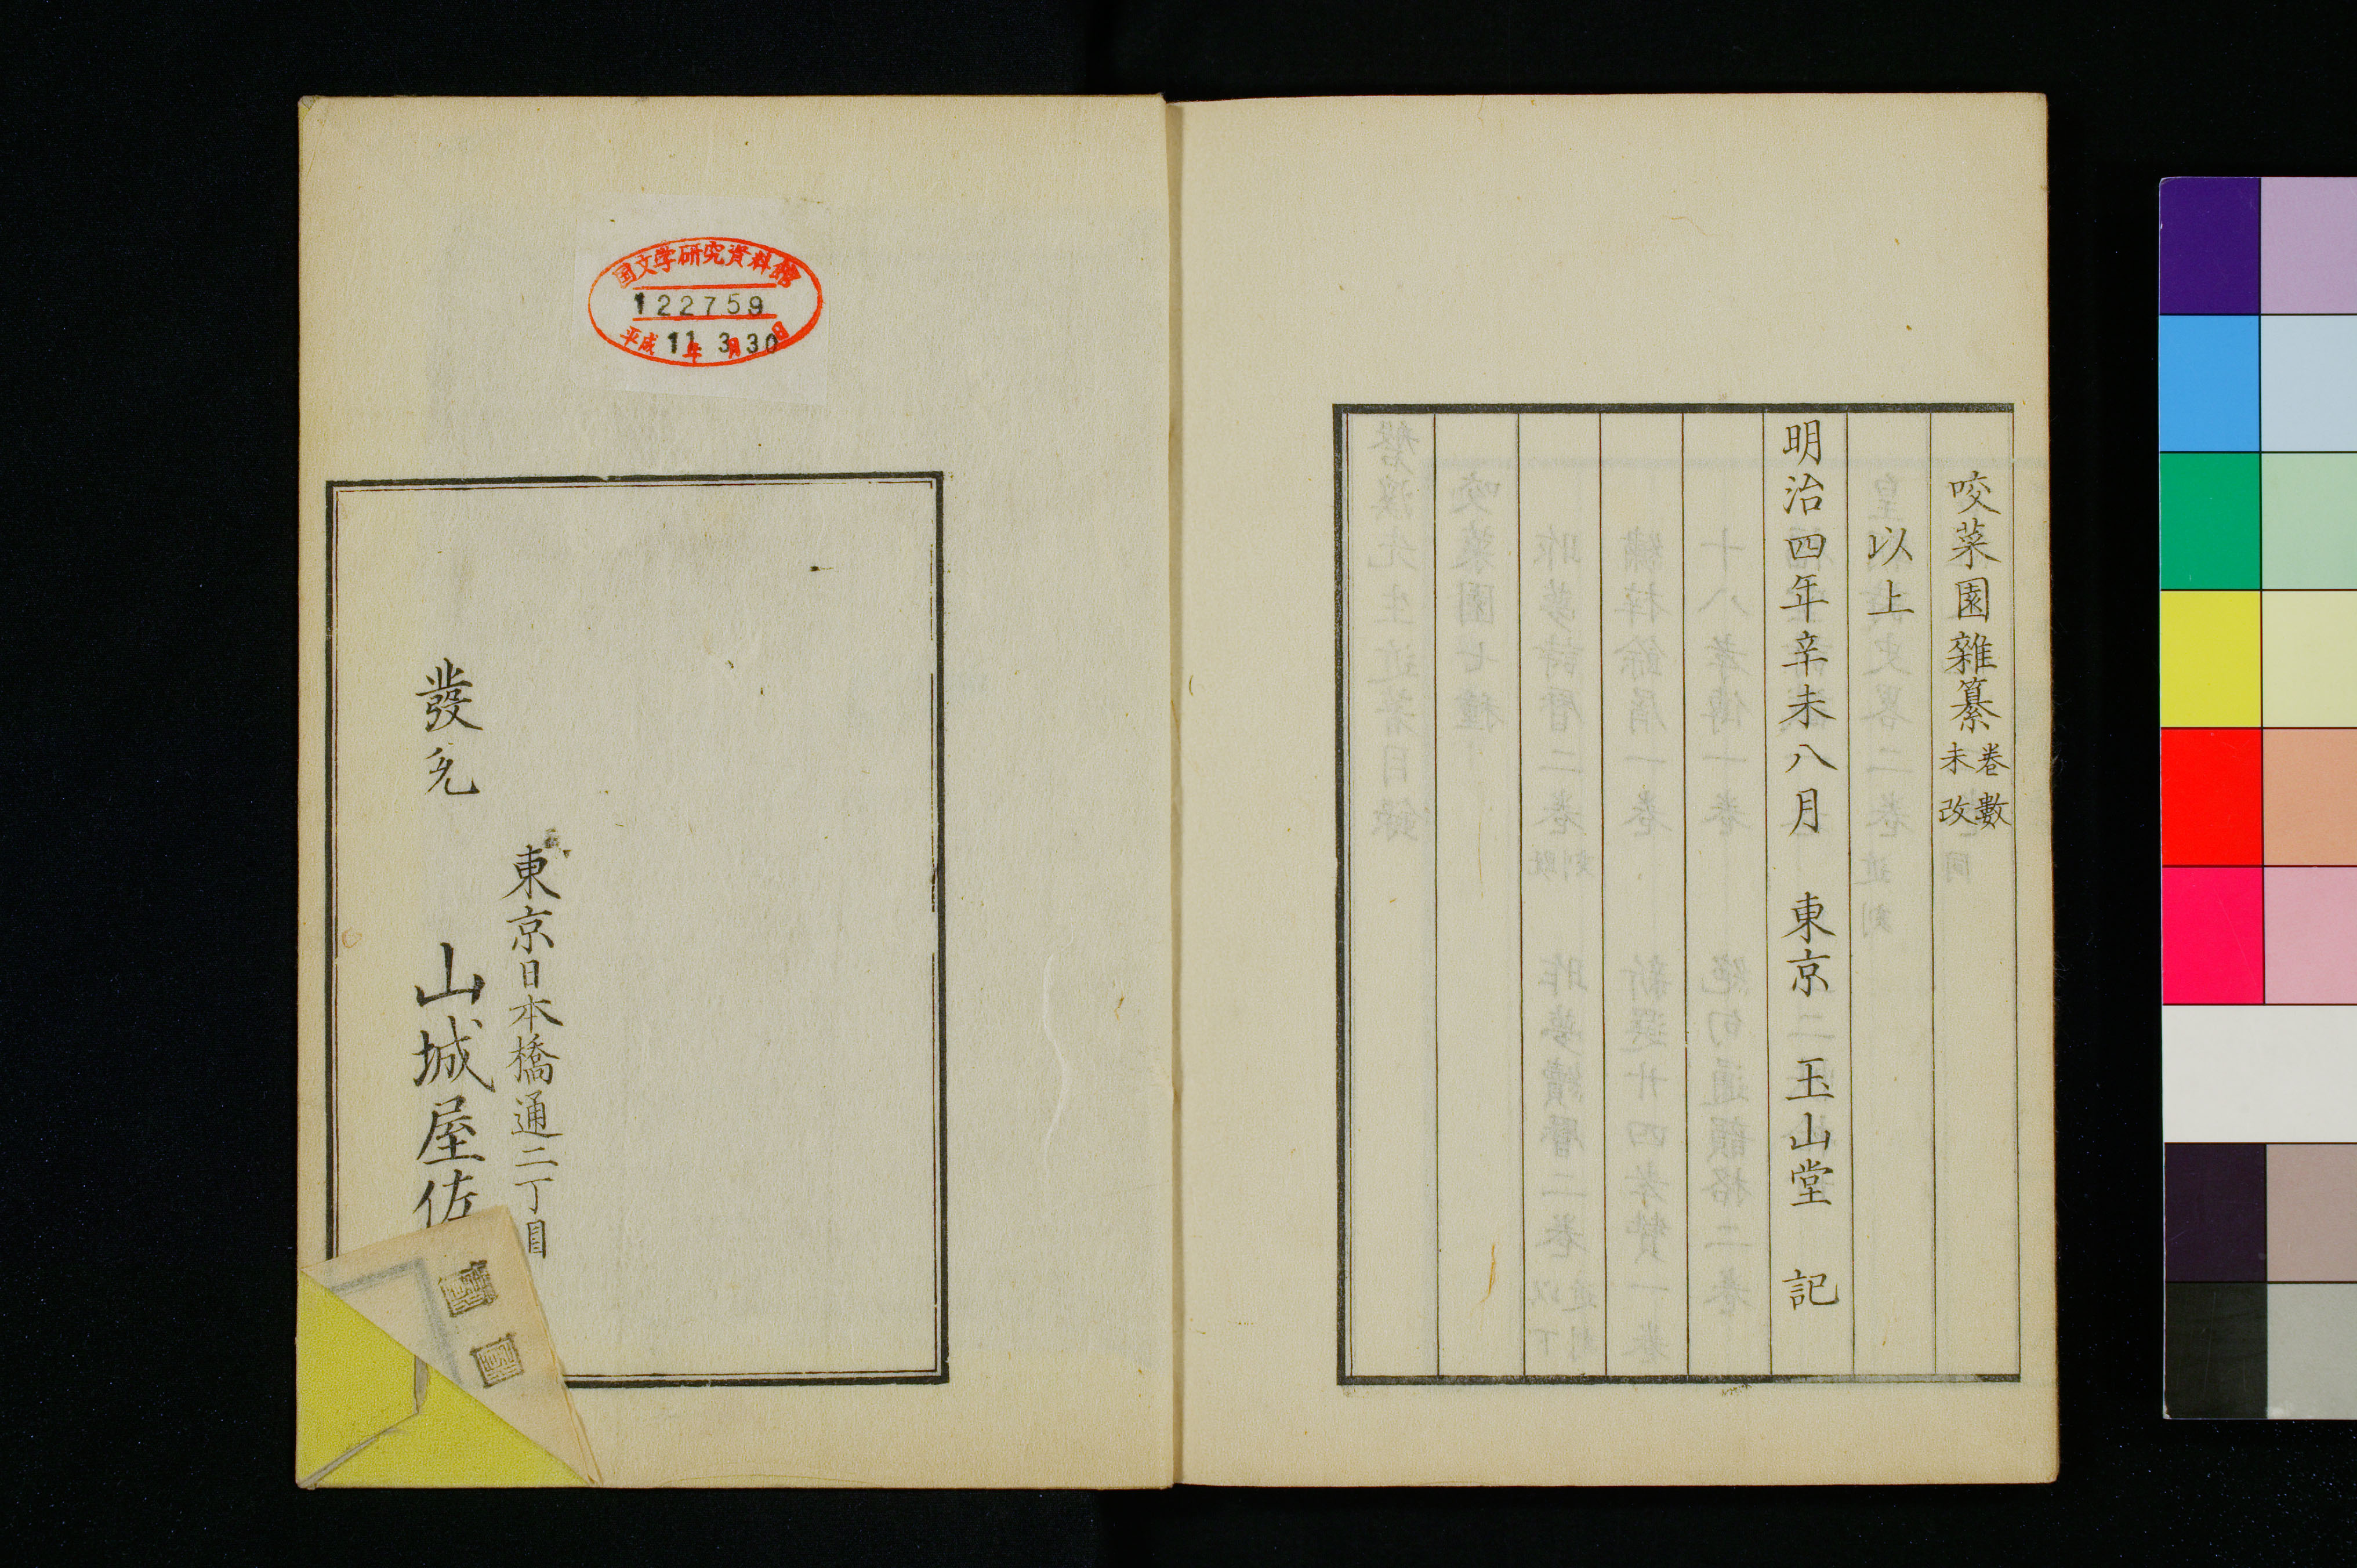 咬菜園雜纂 卷數未改
以上
明治四年辛未八月　東京　玉山堂　記
国文学研究資料館
122759
平成11年3月30日
東京日本橋通二丁目
發兌　山城屋佐